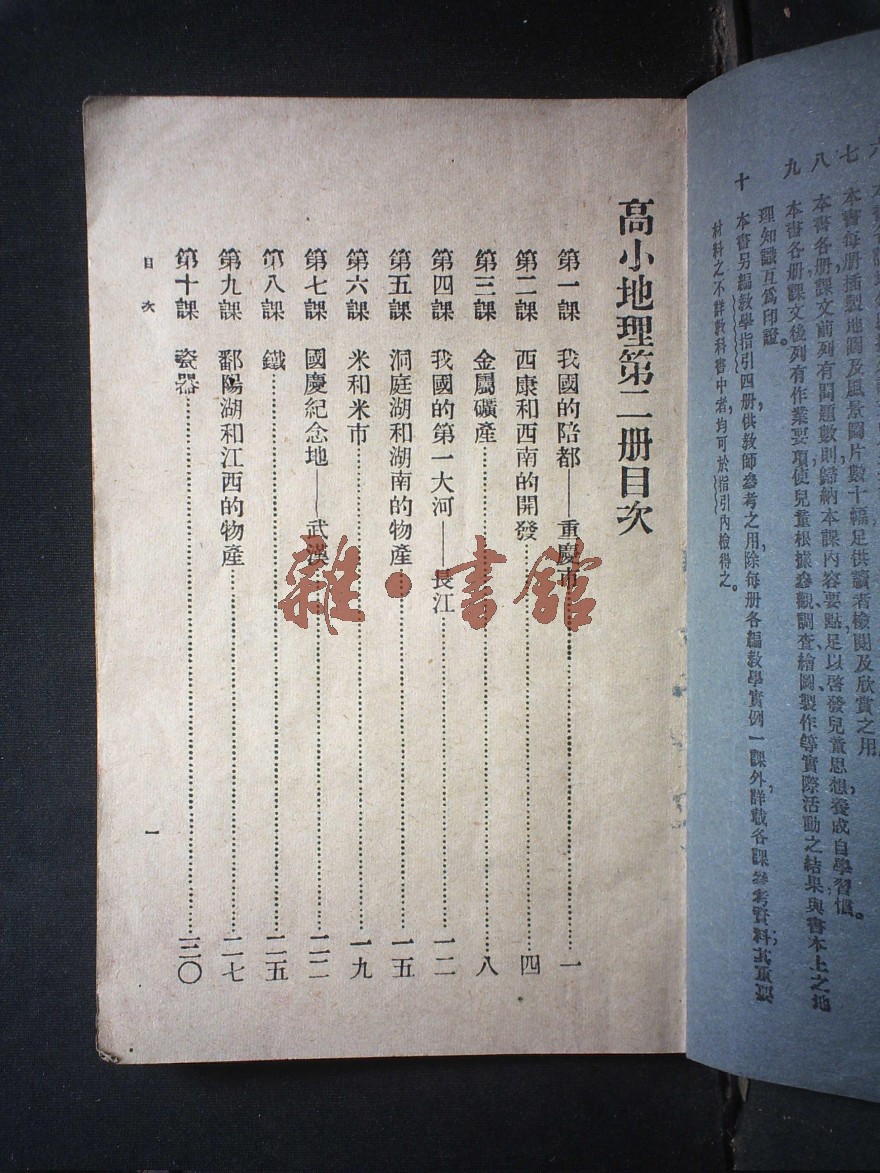 本書每册插製地圖及風景圖片數十幅足供讀者檢閱及欣賞之用
八 本書各册課文前列有問題數則歸納本課內容要點足以啓發兒童思想養成自學習慣。
九 本書各册課文後列有作業要項使兒童根據參觀、調查、繪圖、製作等實際活動之結果,與書本上之地
理知識互爲印證。
十 本書另編教學指引四册,供教師參考之用,除每册各編教學實例一課外,詳載各課參考資料,其重要
材料之不詳教科書中者,均可於指引內檢得之。
高小地理第二册目次
第一課 我國的陪都——重慶市 一
第二課 西康和西南的開發 四
第三課 金屬礦產 八
第四課 我國的第一大河——長江 一二
第五課 洞庭湖和湖南的物產 一五
第六課 米和米市 一九
第七課 國慶紀念地——武漢 二二
第八課 鐵 二五
第九課 鄱陽湖和江西的物產 二七
第十課 瓷器 三〇
目次 一
雜·書館